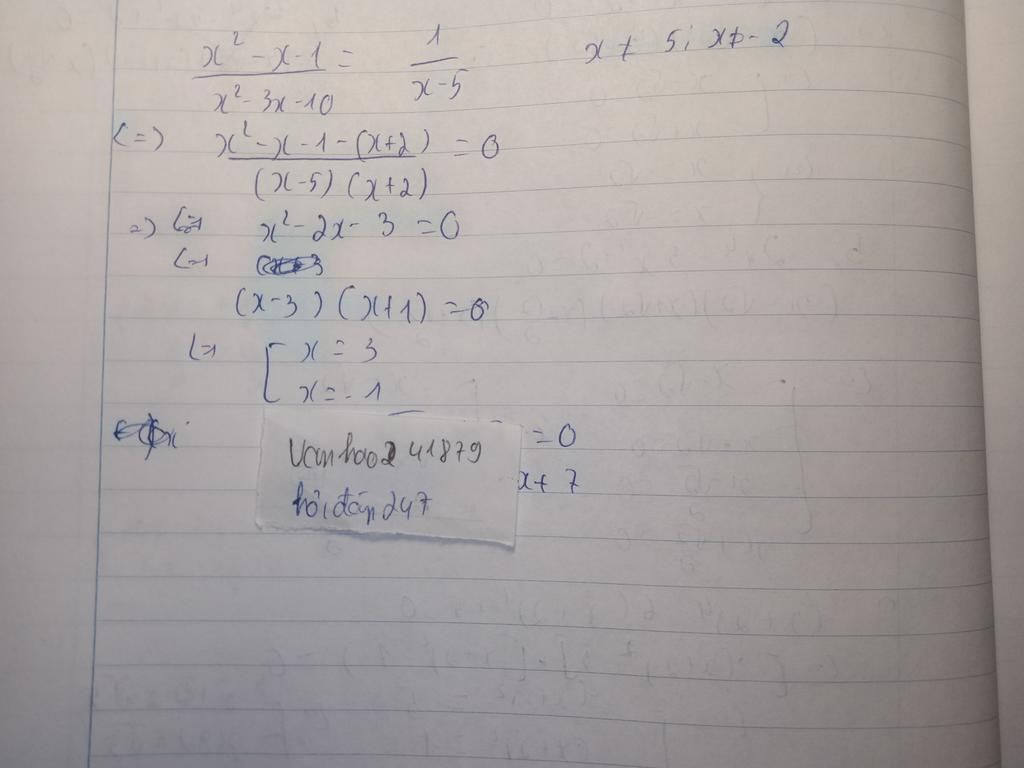 x² - x - 1 / x² - 3x - 10 = 1 / x - 5 x ≠ 5; x ≠ - 2
(=) x² - x - 1 - (x+2) / (x-5) (x+2) = 0
=) x² - 2x - 3 = 0
(x-3) (x+1) = 0
[ x = 3
x = - 1
= 0
x + 7
Vanhao2 41879
hỏi đáp 247